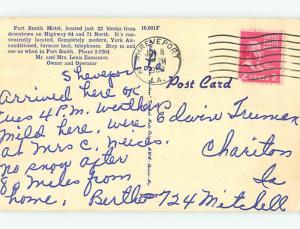 Fort Smith Motel, located just 23 blocks from
downtown on Highway 64 and 71 North. It's con-
veniently located, Completely modern, York Air-
conditioned, furnace heat, telephones. Stop in and
see us when in Fort Smith. Phone 2-7304.
Mr. and Mrs. Lewis
Owner and Operator
10,901F
SHREVEPORT
8
PM
LA.
2
Post Card
Shreveport
La
Arrived here on
Tues 4 P.M. weather
mild here. were
at Mrs C. Neide's
no snow after
80 miles from
home. Bertha
Edwin Truman
Chariton
Ia
724 Mitchell